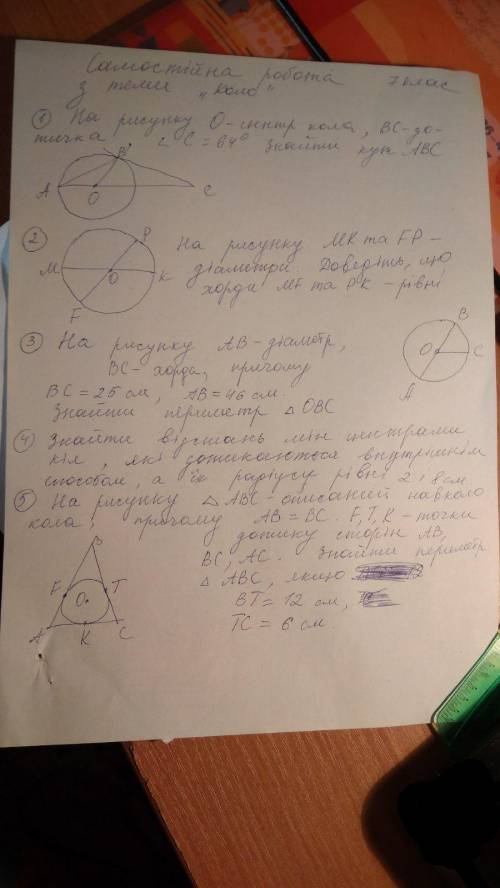 Самостійна робота 7 клас
з теми „Коло"
① На рисунку O-центр кола, BC-до-
тична ∠C = 64° Знайти кут ABC
B
A
O
C
② На рисунку MK та FP -
діаметри. Доведіть, що
хорди MF та PK - рівні
P
M
O
K
F
③ На рисунку AB-діаметр,
BC- хорда, причому
BC = 25 см, AB = 46 см.
Знайти периметр △ OBC
B
O
C
A
④ Знайти відстань між центрами
кіл, які дотикаються внутрішнім
способом, а їх радіуси рівні 2 і 8 см
⑤ На рисунку △ ABC - описаний навколо
кола, причому AB = BC. F, T, K - точки
дотику сторін AB,
BC, AC. Знайти периметр
△ ABC, якщо
BT = 12 см,
TC = 6 см.
B
F
T
O
A
K
C